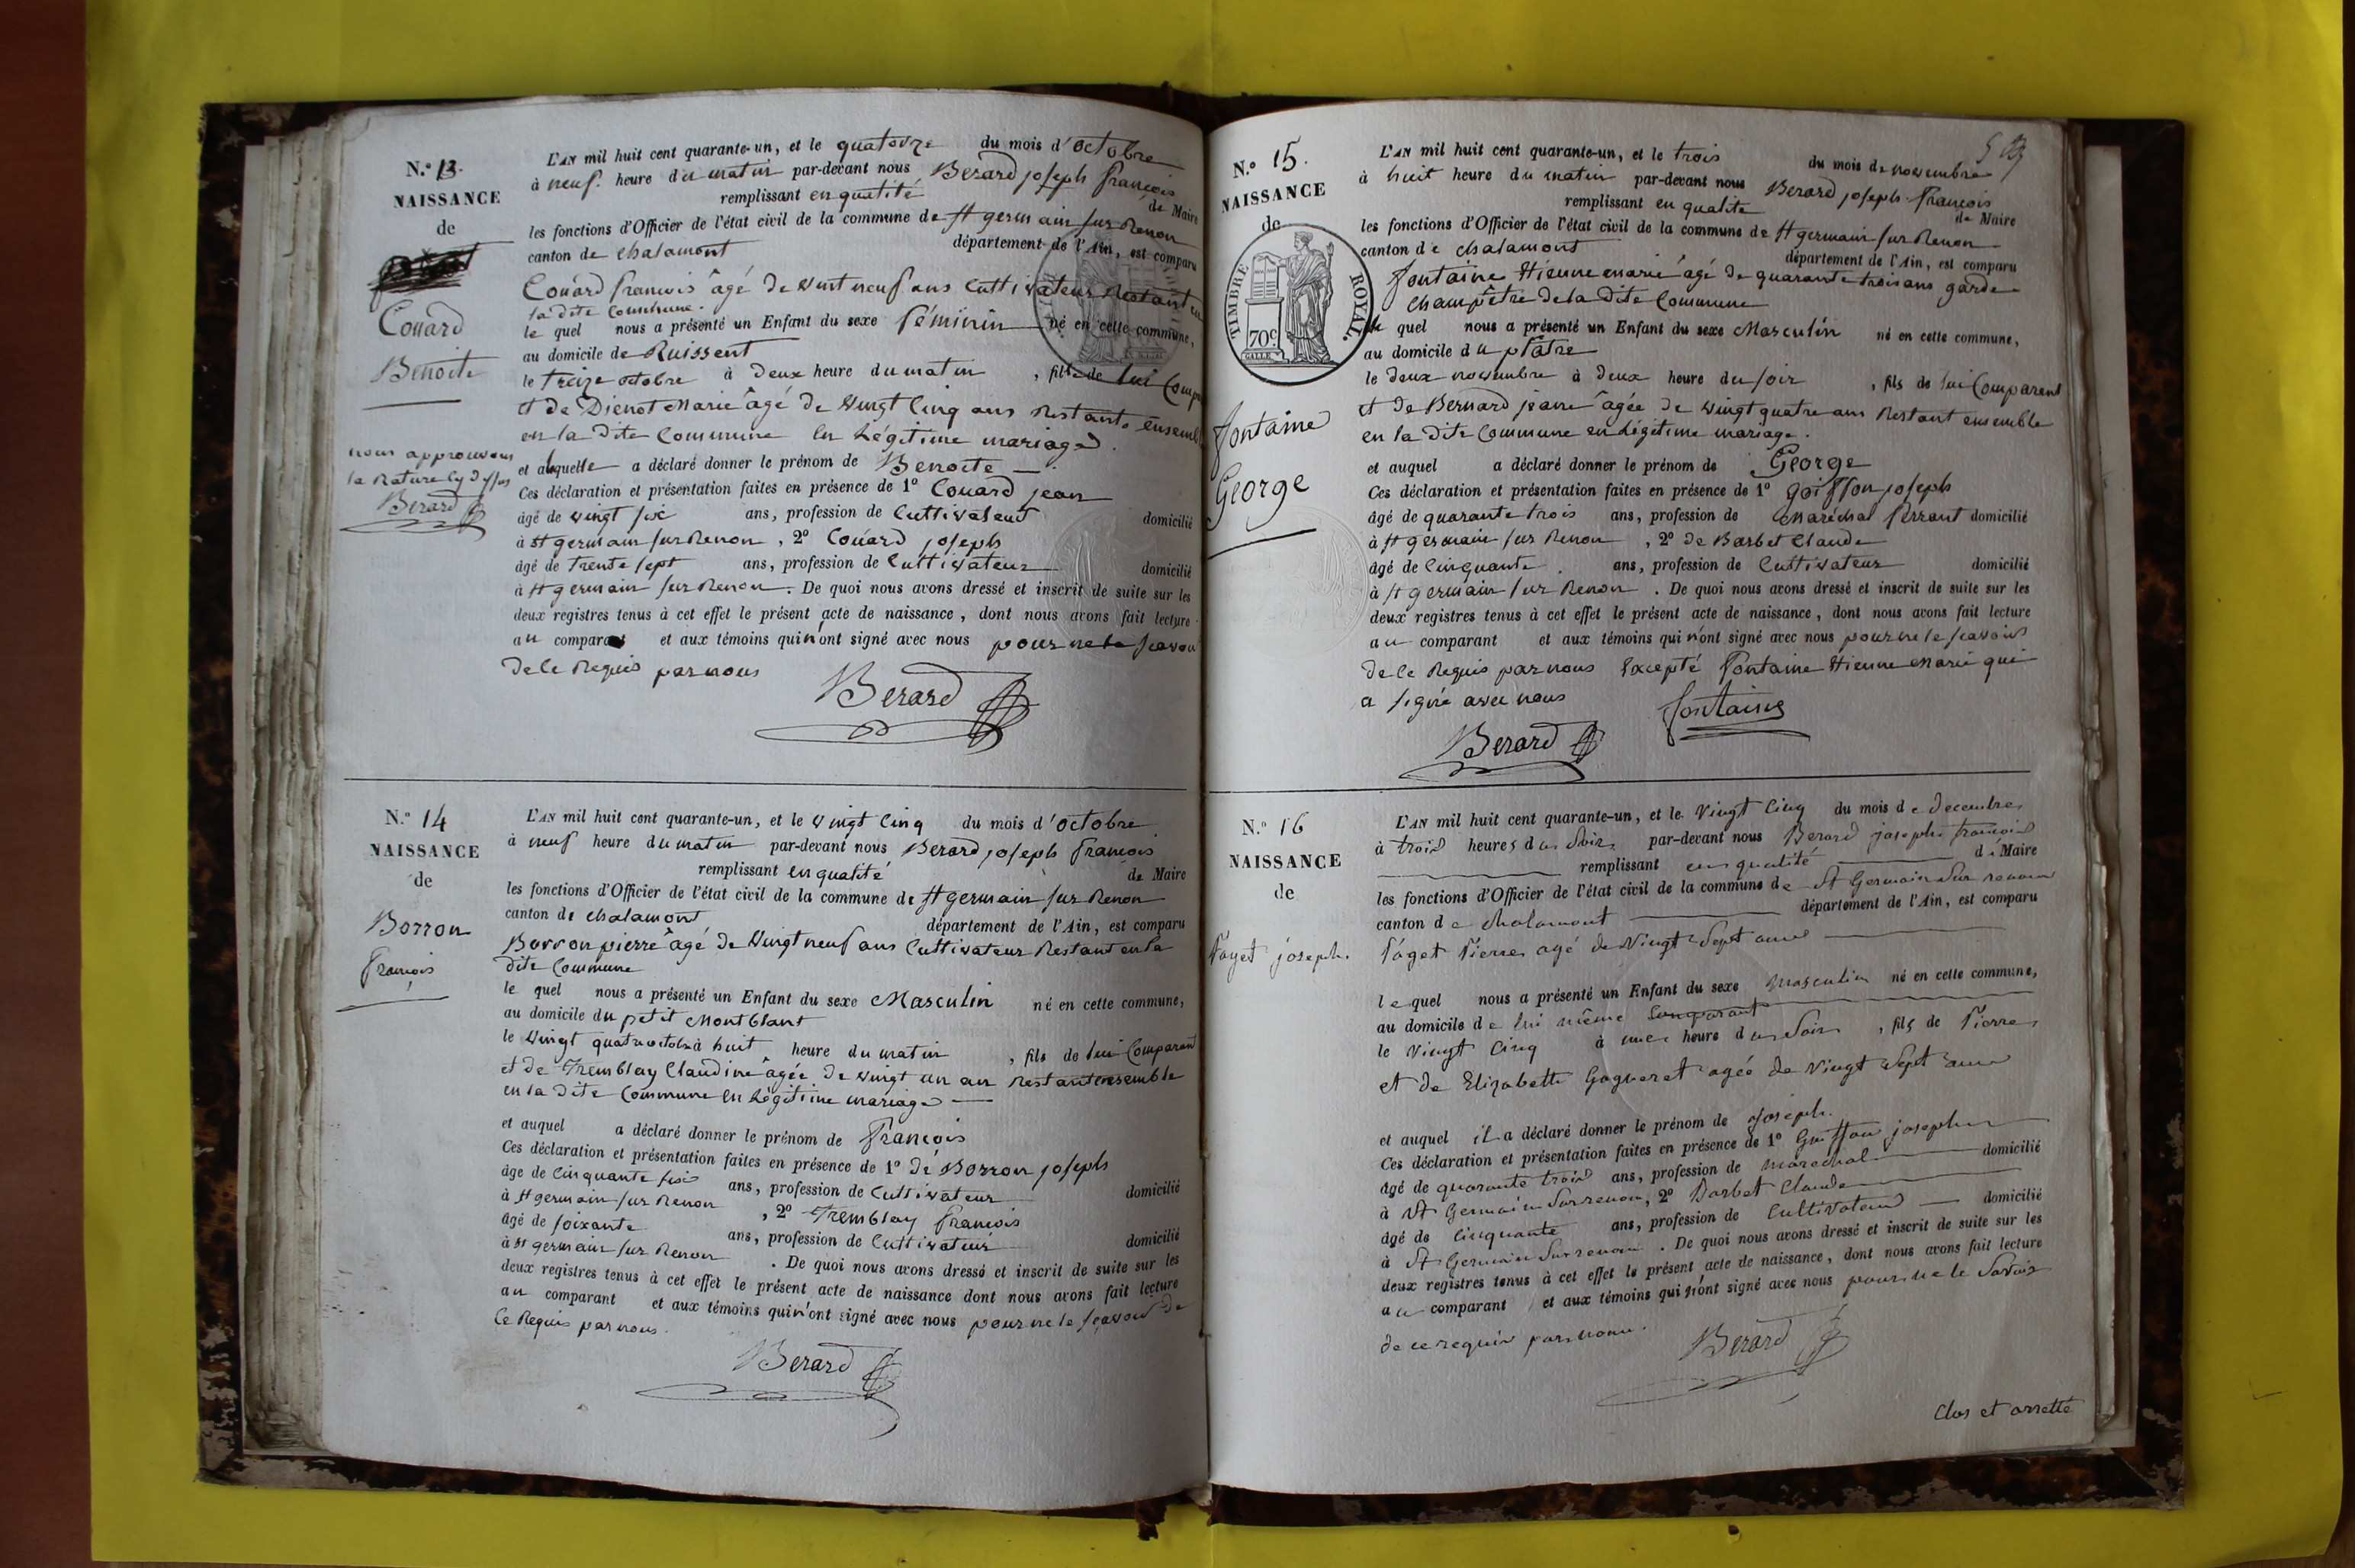 N.º 13.
NAISSANCE
de
Couard
Benoite
nous approuvons
la Rature cy dessus
Berard
L'AN mil huit cent quarante-un, et le quatorze du mois d'octobre
à neuf heure du matin par-devant nous Berard joseph françois
remplissant en qualité de Maire
les fonctions d'Officier de l'état civil de la commune de St germain sur Renon
canton de chalamont département de l'Ain, est comparu
Couard francois âgé de vint neuf ans Cuttivateur Restant en
la dite Commune.
le quel nous a présenté un Enfant du sexe féminin né en cette commune,
au domicile de Ruissent
le treize octobre à deux heure du matin , fils de lui Comp
et de Dienet Marie âgé de vingt Cinq ans Restants ensemb
en la dite Commune en Légitime mariage.
et alaquelle a déclaré donner le prénom de Benoite
Ces déclaration et présentation faites en présence de 1º Couard jean
âgé de vingt six ans, profession de Cuttivateur domicilié
à St germain sur Renon , 2º Couard joseph
âgé de trente sept ans, profession de Cuttivateur domicilié
à St germain sur Renon . De quoi nous avons dressé et inscrit de suite sur les
deux registres tenus à cet effet le présent acte de naissance, dont nous avons fait lecture
au comparant et aux témoins qui n'ont signé avec nous pour ne le scavoir
de ce Requis par nous
Berard
N.º 14
NAISSANCE
de
Borron
françois
L'AN mil huit cent quarante-un, et le vingt Cinq du mois d'octobre
à neuf heure du matin par-devant nous Berard joseph françois
remplissant en qualité de Maire
les fonctions d'Officier de l'état civil de la commune de St germain sur Renon
canton de chalamont département de l'Ain, est comparu
Borron pierre âgé de vingt neuf ans Cuttivateur Restant en la
dite Commune
le quel nous a présenté un Enfant du sexe Masculin né en cette commune,
au domicile du petit Montblant
le vingt quatre octobre à huit heure du matin , fils de lui Comparant
et de Tremblay Claudine âgée de vingt un an Restant ensemble
en la dite Commune en Légitime mariage
et auquel a déclaré donner le prénom de françois
Ces déclaration et présentation faites en présence de 1º de Borron joseph
âgé de Cinquante six ans, profession de Cuttivateur domicilié
à St germain sur Renon , 2º Tremblay francois
âgé de soixante ans, profession de Cuttivateur domicilié
à St germain sur Renon . De quoi nous avons dressé et inscrit de suite sur les
deux registres tenus à cet effet le présent acte de naissance dont nous avons fait lecture
au comparant et aux témoins qui n'ont signé avec nous pour ne le scavoir de
ce Requis par nous.
Berard
N.º 15.
NAISSANCE
de
TIMBRE ROYAL.
70c
Fontaine
George
L'AN mil huit cent quarante-un, et le trois du mois de novembre
à huit heure du matin par-devant nous Berard joseph françois
remplissant en qualité de Maire
les fonctions d'Officier de l'état civil de la commune de St germain sur Renon
canton de chalamont département de l'Ain, est comparu
fontaine Etienne marie âgé de quarante trois ans garde
champêtre de la dite Commune
le quel nous a présenté un Enfant du sexe Masculin né en cette commune,
au domicile du plâtre
le deux novembre à deux heure du soir , fils de lui Comparent
et de Bernard jeane âgée de vingt quatre ans Restant ensemble
en la dite Commune en Légitime mariage.
et auquel a déclaré donner le prénom de George
Ces déclaration et présentation faites en présence de 1º goiffon joseph
âgé de quarante trois ans, profession de Maréchal ferrant domicilié
à St germain sur Renon , 2º de Barbet Claude
âgé de Cinquante . ans, profession de Cuttivateur domicilié
à St germain sur Renon . De quoi nous avons dressé et inscrit de suite sur les
deux registres tenus à cet effet le présent acte de naissance, dont nous avons fait lecture
au comparant et aux témoins qui n'ont signé avec nous pour ne le scavoir
de ce Requis par nous Excepté fontaine Etienne Marie qui
a signé avec nous
fontaine
Berard
N.º 16
NAISSANCE
de
Paget joseph.
L'AN mil huit cent quarante-un, et le Vingt Cinq du mois de decembre
à trois heures du Soir par-devant nous Berard joseph françois
remplissant en qualité de Maire
les fonctions d'Officier de l'état civil de la commune de St Germain Sur renon
canton de chalamont département de l'Ain, est comparu
Paget Pierre agé de Vingt Sept ans
lequel nous a présenté un Enfant du sexe masculin né en cette commune,
au domicile de lui même Comparant
le Vingt Cinq à une heure du Soir , fils de Pierre
et de Elizabette Gagneret agéé de Vingt Sept ans
et auquel il a déclaré donner le prénom de Joseph.
Ces déclaration et présentation faites en présence de 1º Goiffon joseph
âgé de quarante trois ans, profession de maréchal domicilié
à St Germain Sur renon, 2º Barbet Claude
âgé de Cinquante ans, profession de Cultivateur domicilié
à St Germain Sur renon . De quoi nous avons dressé et inscrit de suite sur les
deux registres tenus à cet effet le présent acte de naissance, dont nous avons fait lecture
au comparant et aux témoins qui n'ont signé avec nous pour ne le Savoir
de ce requis par nous.
Berard
Clos et arretté